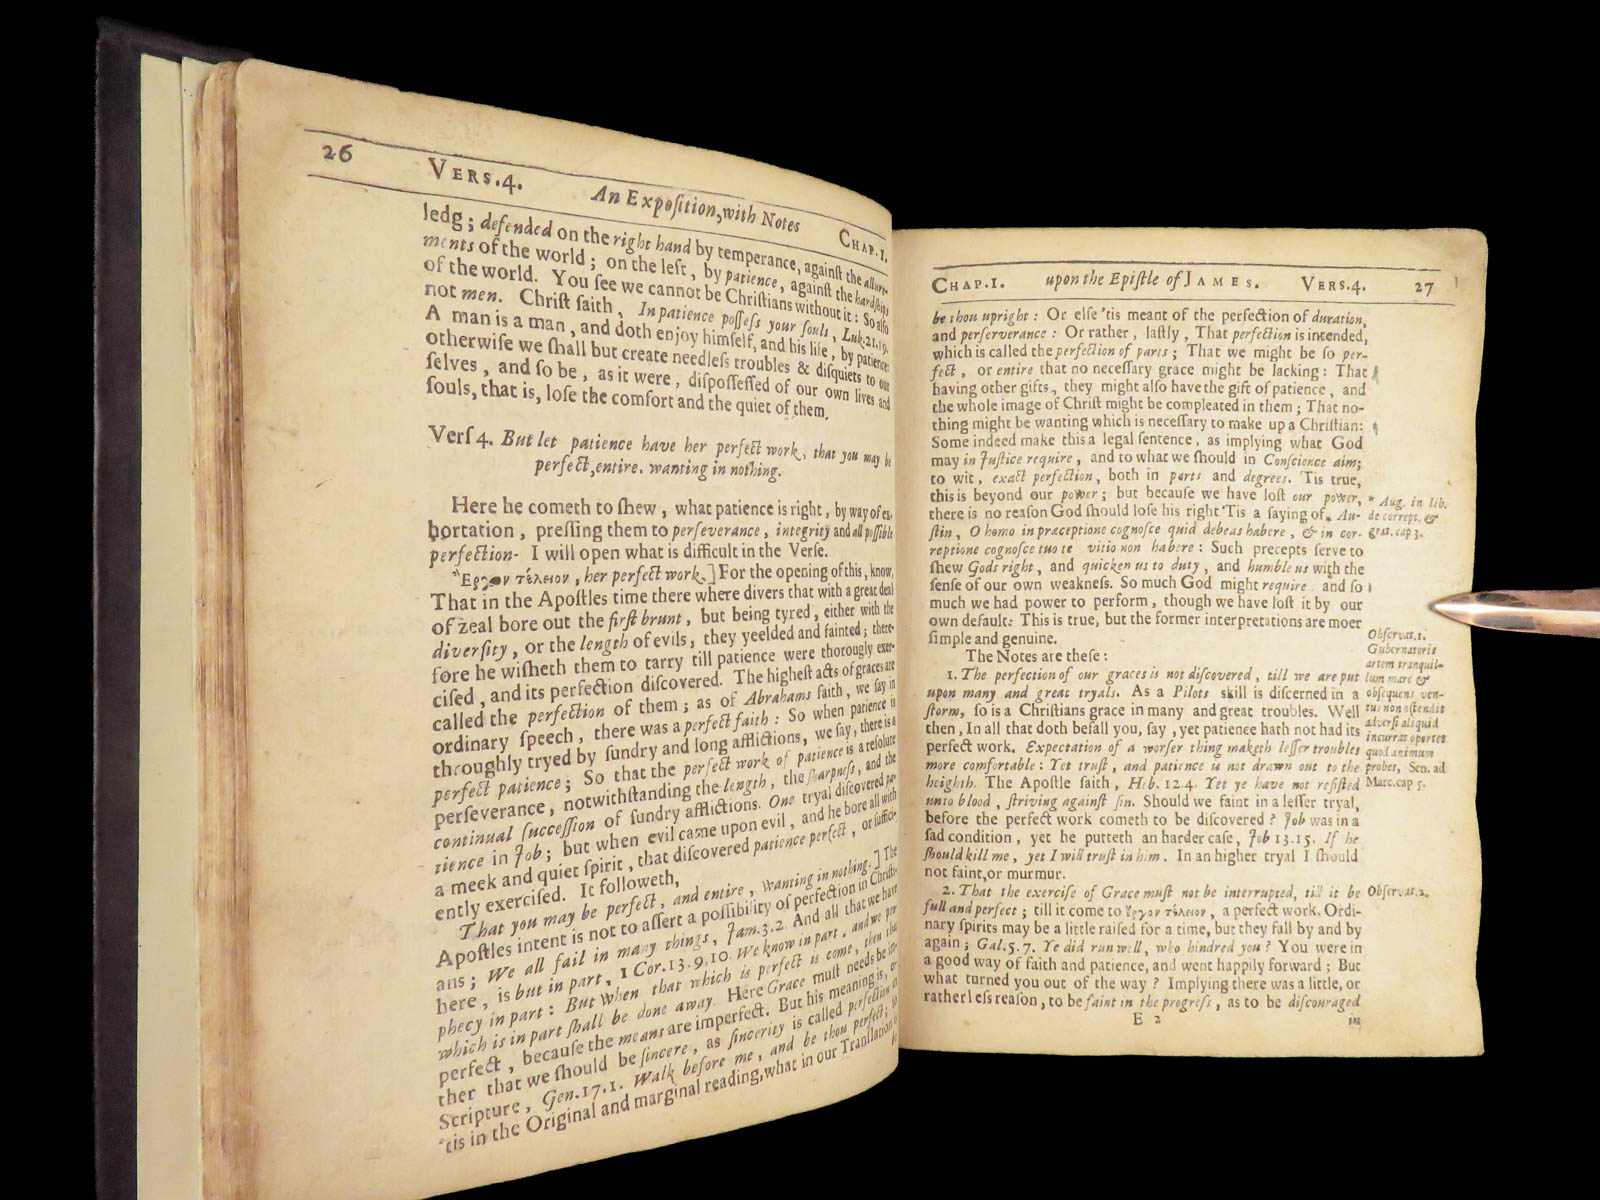 26 VERS.4. An Expoſition, with Notes CHAP.1.
ledg; defended on the right hand by temperance, againſt the allure-
ments of the world; on the left, by patience, againſt the hardſhips
of the world. You ſee we cannot be Chriſtians without it: So alſo
not men. Chriſt ſaith, In patience poſſeſs your ſouls, Luk.21.19.
A man is a man, and doth enjoy himſelf, and his life, by patience:
otherwiſe we ſhall but create needleſs troubles & diſquiets to our
ſelves, and ſo be, as it were, diſpoſſeſſed of our own lives and
ſouls, that is, loſe the comfort and the quiet of them.
Verſ 4. But let patience have her perfect work, that you may be
perfect, entire, wanting in nothing.
Here he cometh to ſhew, what patience is right, by way of ex-
hortation, preſſing them to perſeverance, integrity and all poſſible
perfection. I will open what is difficult in the Verſe.
Ἔργον τέλειον, her perfect work.] For the opening of this, know,
That in the Apoſtles time there where divers that with a great deal
of zeal bore out the firſt brunt, but being tyred, either with the
diverſity, or the length of evils, they yeelded and fainted; there-
fore he wiſheth them to tarry till patience were thorougly exer-
ciſed, and its perfection diſcovered. The higheſt acts of graces are
called the perfection of them; as of Abrahams faith, we ſay in
ordinary ſpeech, there was a perfect faith: So when patience is
throughly tryed by ſundry and long afflictions, we ſay, there is a
perfect patience; So that the perfect work of patience is a reſolute
perſeverance, notwithſtanding the length, the ſharpneſs, and the
continual ſucceſſion of ſundry afflictions. One tryal diſcovered pa-
tience in Job; but when evil came upon evil, and he bore all with
a meek and quiet ſpirit, that diſcovered patience perfect, or ſuffici-
ently exerciſed. It followeth,
That you may be perfect, and entire, wanting in nothing.] The
Apoſtles intent is not to aſſert a poſſibility of perfection in Chriſti-
ans; We all fail in many things, Jam.3.2. And all that we have
here, is but in part, 1 Cor.13.9,10. We know in part, and we pro-
phecy in part: But when that which is perfect is come, then that
which is in part ſhall be done away. Here Grace muſt needs be im-
perfect, becauſe the means are imperfect. But his meaning is, ei-
ther that we ſhould be ſincere, as ſincerity is called perfection in
Scripture, Gen.17.1. Walk before me, and be thou perfect;
'tis in the Original and marginal reading, what in our Tranſlation is
CHAP.1. upon the Epiſtle of JAMES. VERS.4. 27
be thou upright: Or elſe 'tis meant of the perfection of duration,
and perſerverance: Or rather, laſtly, That perfection is intended,
which is called the perfection of parts; That we might be ſo per-
fect, or entire that no neceſſary grace might be lacking: That
having other gifts, they might alſo have the gift of patience, and
the whole image of Chriſt might be compleated in them; That no-
thing might be wanting which is neceſſary to make up a Chriſtian:
Some indeed make this a legal ſentence, as implying what God
may in Juſtice require, and to what we ſhould in Conſcience aim;
to wit, exact perfection, both in parts and degrees. 'Tis true,
this is beyond our power; but becauſe we have loſt our power,
there is no reaſon God ſhould loſe his right 'Tis a ſaying of * Au-
ſtin, O homo in præceptione cognoſce quid debeas habere, & in cor-
reptione cognoſce tuo te vitio non habere: Such precepts ſerve to
ſhew Gods right, and quicken us to duty, and humble us with the
ſenſe of our own weakneſs. So much God might require and ſo
much we had power to perform, though we have loſt it by our
own default: This is true, but the former interpretations are moer
ſimple and genuine.
The Notes are theſe:
1. The perfection of our graces is not diſcovered, till we are put
upon many and great tryals. As a Pilots skill is diſcerned in a
ſtorm, ſo is a Chriſtians grace in many and great troubles. Well
then, In all that doth befall you, ſay, yet patience hath not had its
perfect work. Expectation of a worſer thing maketh leſſer troubles
more comfortable: Yet truſt, and patience is not drawn out to the
heighth. The Apoſtle ſaith, Heb. 12 4. Yet ye have not reſiſted
unto blood, ſtriving againſt ſin. Should we faint in a leſſer tryal,
before the perfect work cometh to be diſcovered? Job was in a
ſad condition, yet he putteth an harder caſe, Job 13.15. If he
ſhould kill me, yet I will truſt in him. In an higher tryal I ſhould
not faint, or murmur.
2. That the exerciſe of Grace muſt not be interrupted, till it be
full and perfect; till it come to ἔργον τέλειον, a perfect work. Ordi-
nary ſpirits may be a little raiſed for a time, but they fall by and by
again; Gal.5.7. Ye did run well, who hindred you? You were in
a good way of faith and patience, and went happily forward; But
what turned you out of the way? Implying there was a little, or
rather leſs reaſon, to be faint in the progreſs, as to be diſcouraged
E 2 in
* Aug. in lib.
de corrept. &
grat. cap 3.
Obſervat.1.
Gubernatoris
artem tranquil-
lum mare &
obſequens ven-
tus non oſtendit
adverſi aliquid
incurrat oportet
quod animum
probet, Sen. ad
Marc.cap 5.
Obſervat.2.